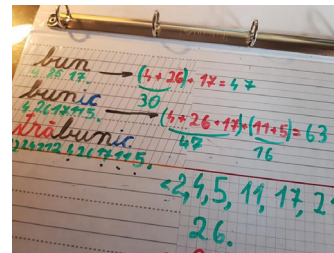 bun → (4+26)+17=47
4 26 17
30
bunic → (4+26+17)+(11+5)=63
4 26 17 11 5.
47 16
străbunic
4 26 17 11 5.
2, 4, 5, 11, 17, 2
26.